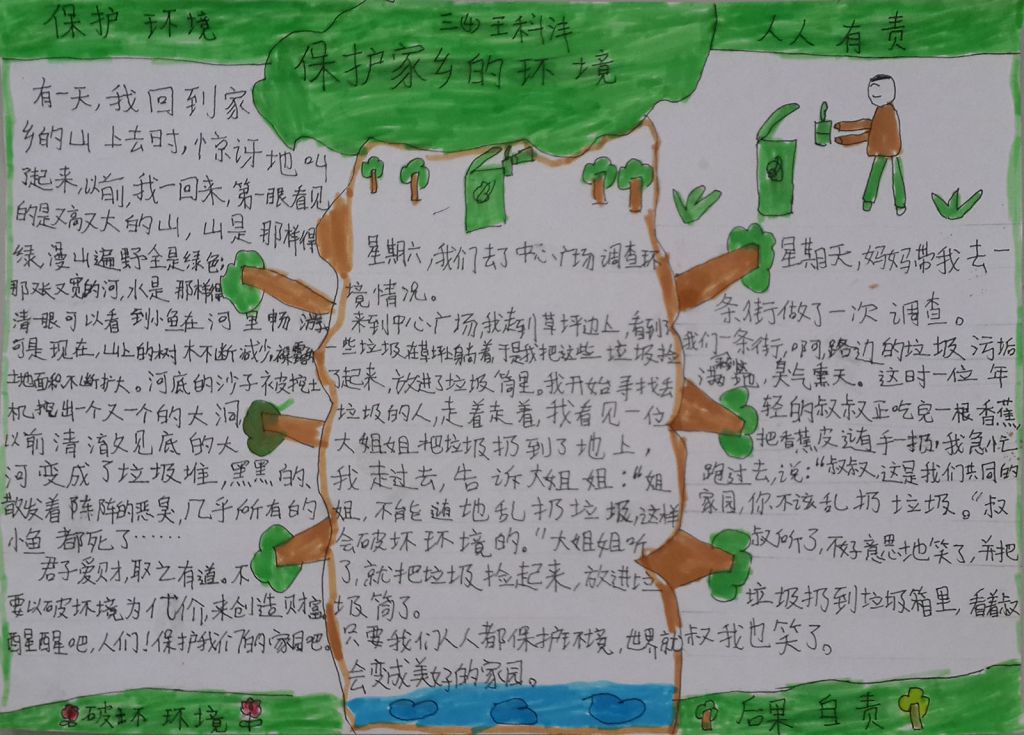 保护环境
三④王科沣
人人有责
保护家乡的环境
有一天,我回到家
乡的山上去时,惊讶地叫
了起来,以前,我一回来,第一眼看见
的是又高又大的山,山是那样得
绿,漫山遍野全是绿色;
那又长又宽的河,水是那样得
清一眼可以看到小鱼在河里畅游
可是现在,山上的树木不断减少,裸露的
土地面积不断扩大。河底的沙子被挖土
机挖出一个又一个的大洞
以前清澈又见底的大
河变成了垃圾堆,黑黑的,
散发着阵阵的恶臭,几乎所有的
小鱼都死了……
君子爱财,取之有道。不
要以破坏环境为代价,来创造财富
醒醒吧,人们!保护我们的家园吧。
星期六,我们去了中心广场调查环
境情况。
来到中心广场,我走到草坪边上,看到了
一些垃圾在草坪躺着于是我把这些垃圾捡
了起来,放进了垃圾筒里。我开始寻找丢
垃圾的人,走着走着,我看见一位
大姐姐把垃圾扔到了地上,
我走过去,告诉大姐姐:“姐
姐,不能随地乱扔垃圾,这样
会破坏环境的。”大姐姐听
了,就把垃圾捡起来,放进垃
圾筒了。
只要我们人人都保护环境,世界就
会变成美好的家园。
星期天,妈妈带我去一
条街做了一次调查。
我们一条街,啊路边的垃圾污垢
满地,臭气熏天。这时一位年
轻的叔叔正吃完一根香蕉,
把香蕉皮随手一扔,我急忙
跑过去,说:“叔叔,这是我们共同的
家园,你不该乱扔垃圾。”叔
叔听了,不好意思地笑了,并把
垃圾扔到垃圾箱里,看着叔
叔我也笑了。
破坏环境
后果自责